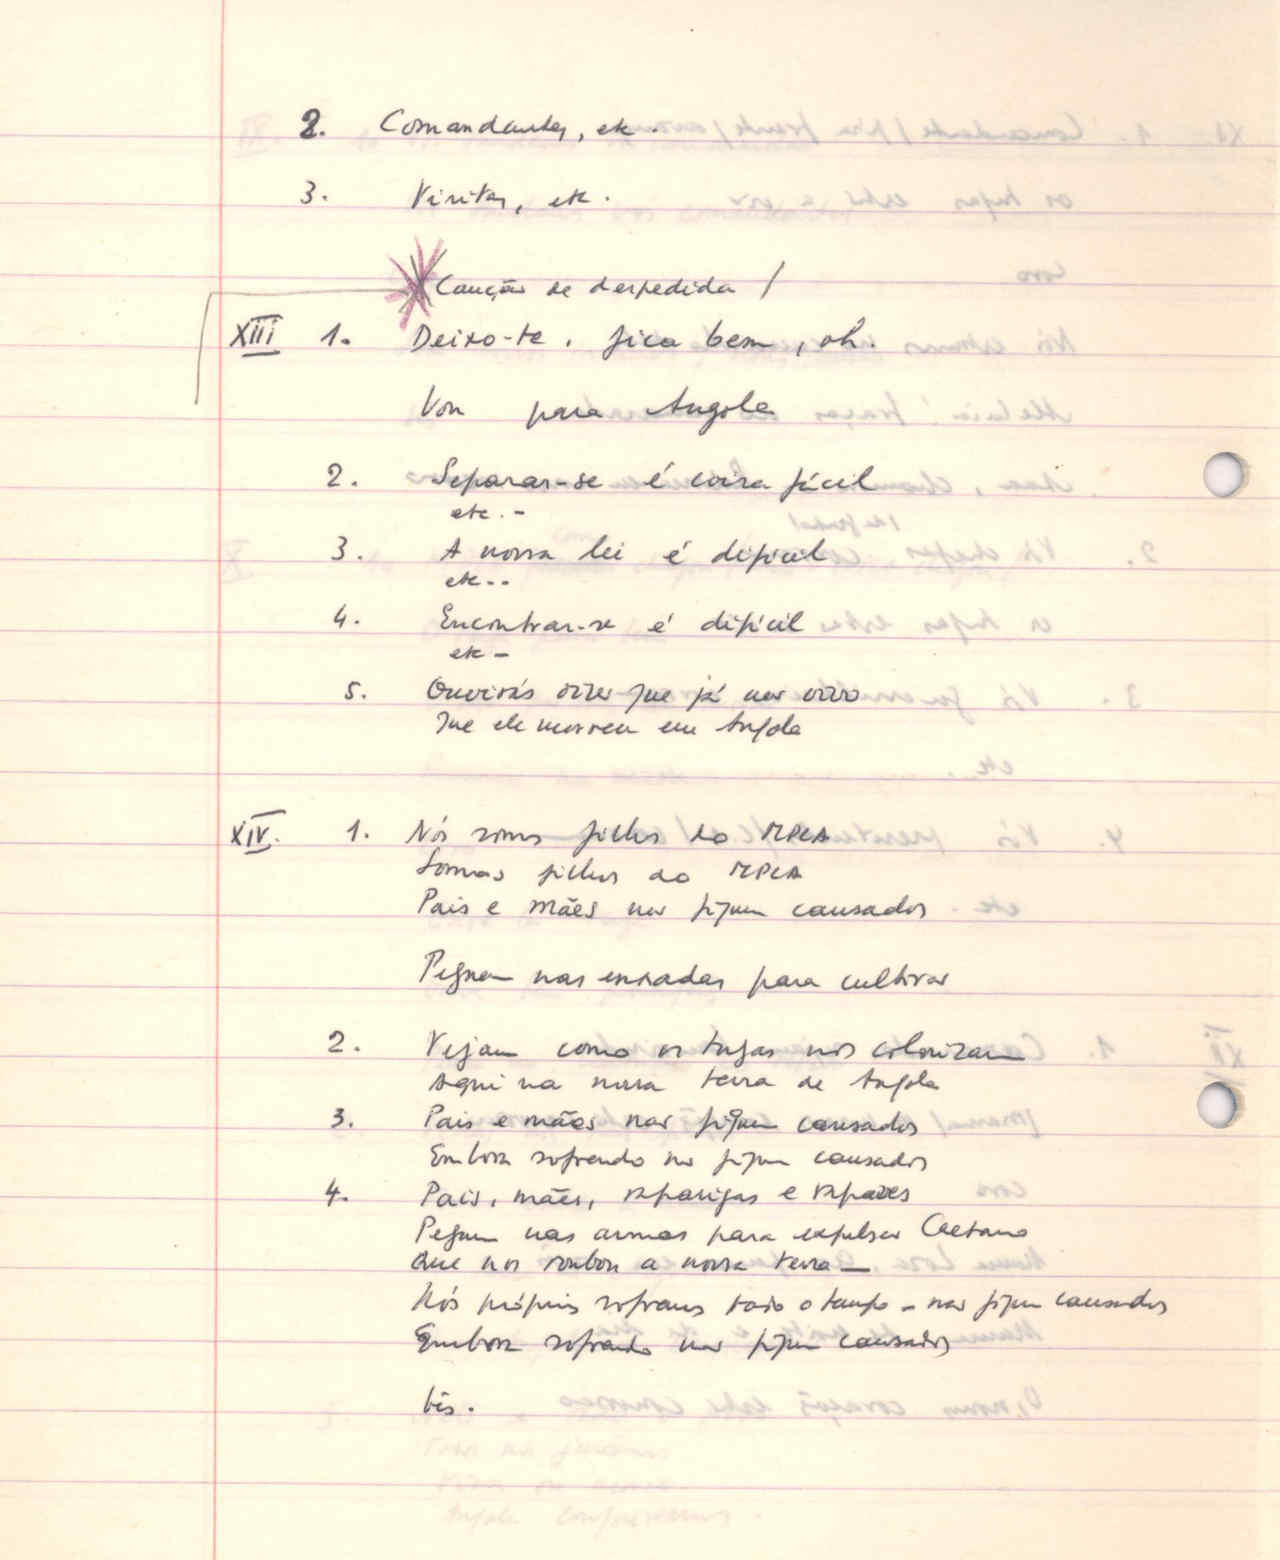 2. Comandantes, etc.
3. Visitas, etc.
Canção de despedida /
XIII 1. Deixo-te. fica bem, oh.
Vou para Angola
2. Separar-se é coisa fácil
etc. -
3. A nossa lei é difícil
etc..
4. Encontrar-se é difícil
etc -
5. Ouvirás dizer que já não vivo
Que ele morreu em Angola
XIV. 1. Nós somos filhos do MPLA
Somos filhos do MPLA
Pais e mães não fiquem cansados
Peguem nas enxadas para cultivar
2. Vejam como os tugas nos colonizam
Aqui na nossa terra de Angola
3. Pais e mães não fiquem cansados
Embora sofrendo não fiquem cansados
4. Pais, mães, raparigas e rapazes
Peguem nas armas para expulsar Caetano
Que nos roubou a nossa terra -
Nós próprios sofremos todo o tempo - não fiquem cansados
Embora sofrendo não fiquem cansados
bis.